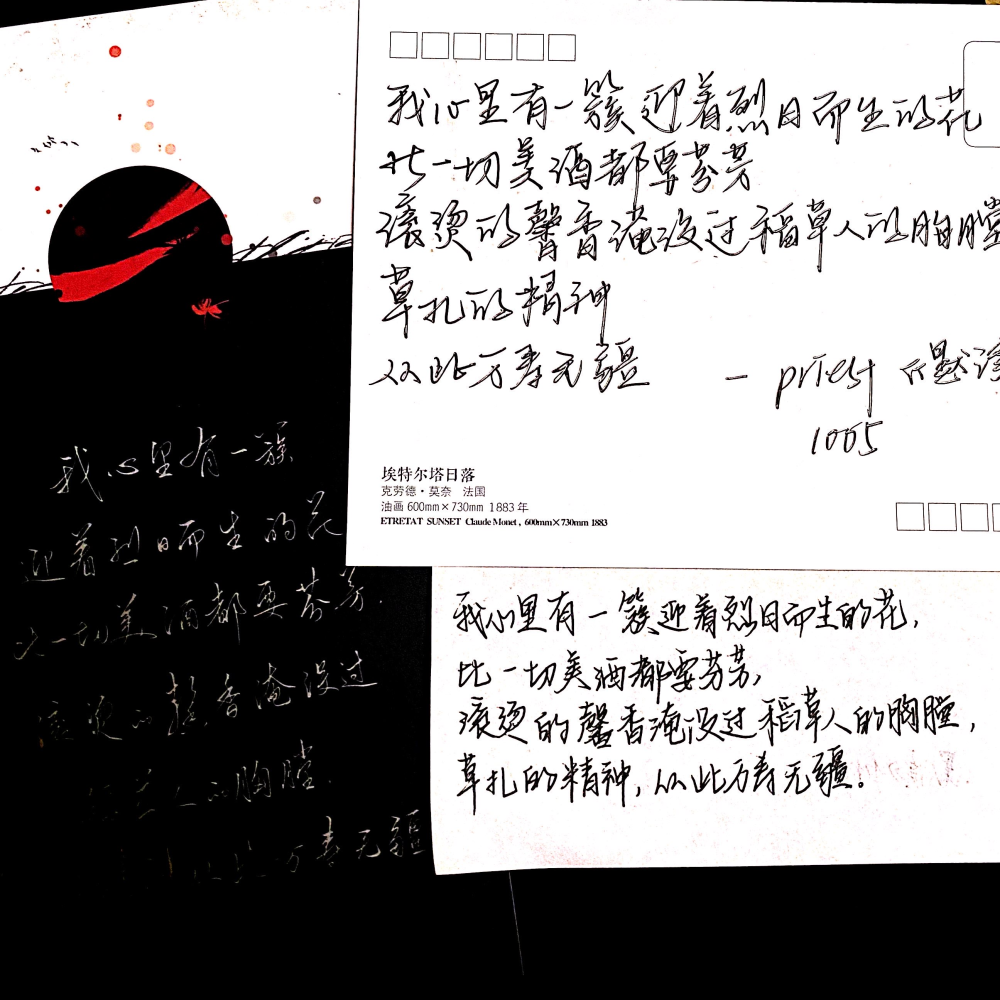 我心里有一簇迎着烈日而生的花
比一切美酒都要芬芳
滚烫的馨香淹没过稻草人的胸膛
草扎的精神
从此万寿无疆 — priest 《默读
1005
埃特尔塔日落
克劳德·莫奈 法国
油画 600mm×730mm 1883 年
ETRETAT SUNSET Claude Monet, 600mm×730mm 1883
我心里有一簇
迎着烈日而生的花
比一切美酒都要芬芳.
滚烫的馨香淹没过
稻草人的胸膛.
从此万寿无疆
我心里有一簇迎着烈日而生的花,
比一切美酒都要芬芳,
滚烫的馨香淹没过稻草人的胸膛,
草扎的精神, 从此万寿无疆。